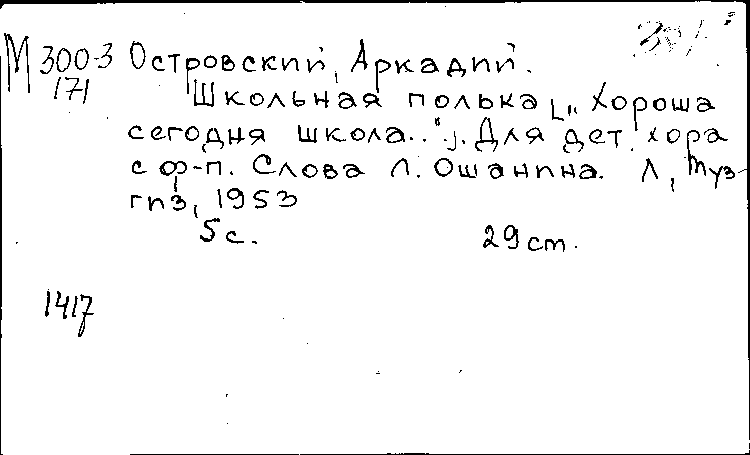 М 300-3 Островский, Аркадий.
171
Школьная полька [„Хороша
сегодня школа.."]. Для дет. хора
с ф-п. Слова Л. Ошанина. Л, Муз-
гиз, 1953
5 с. 29 cm.
1417